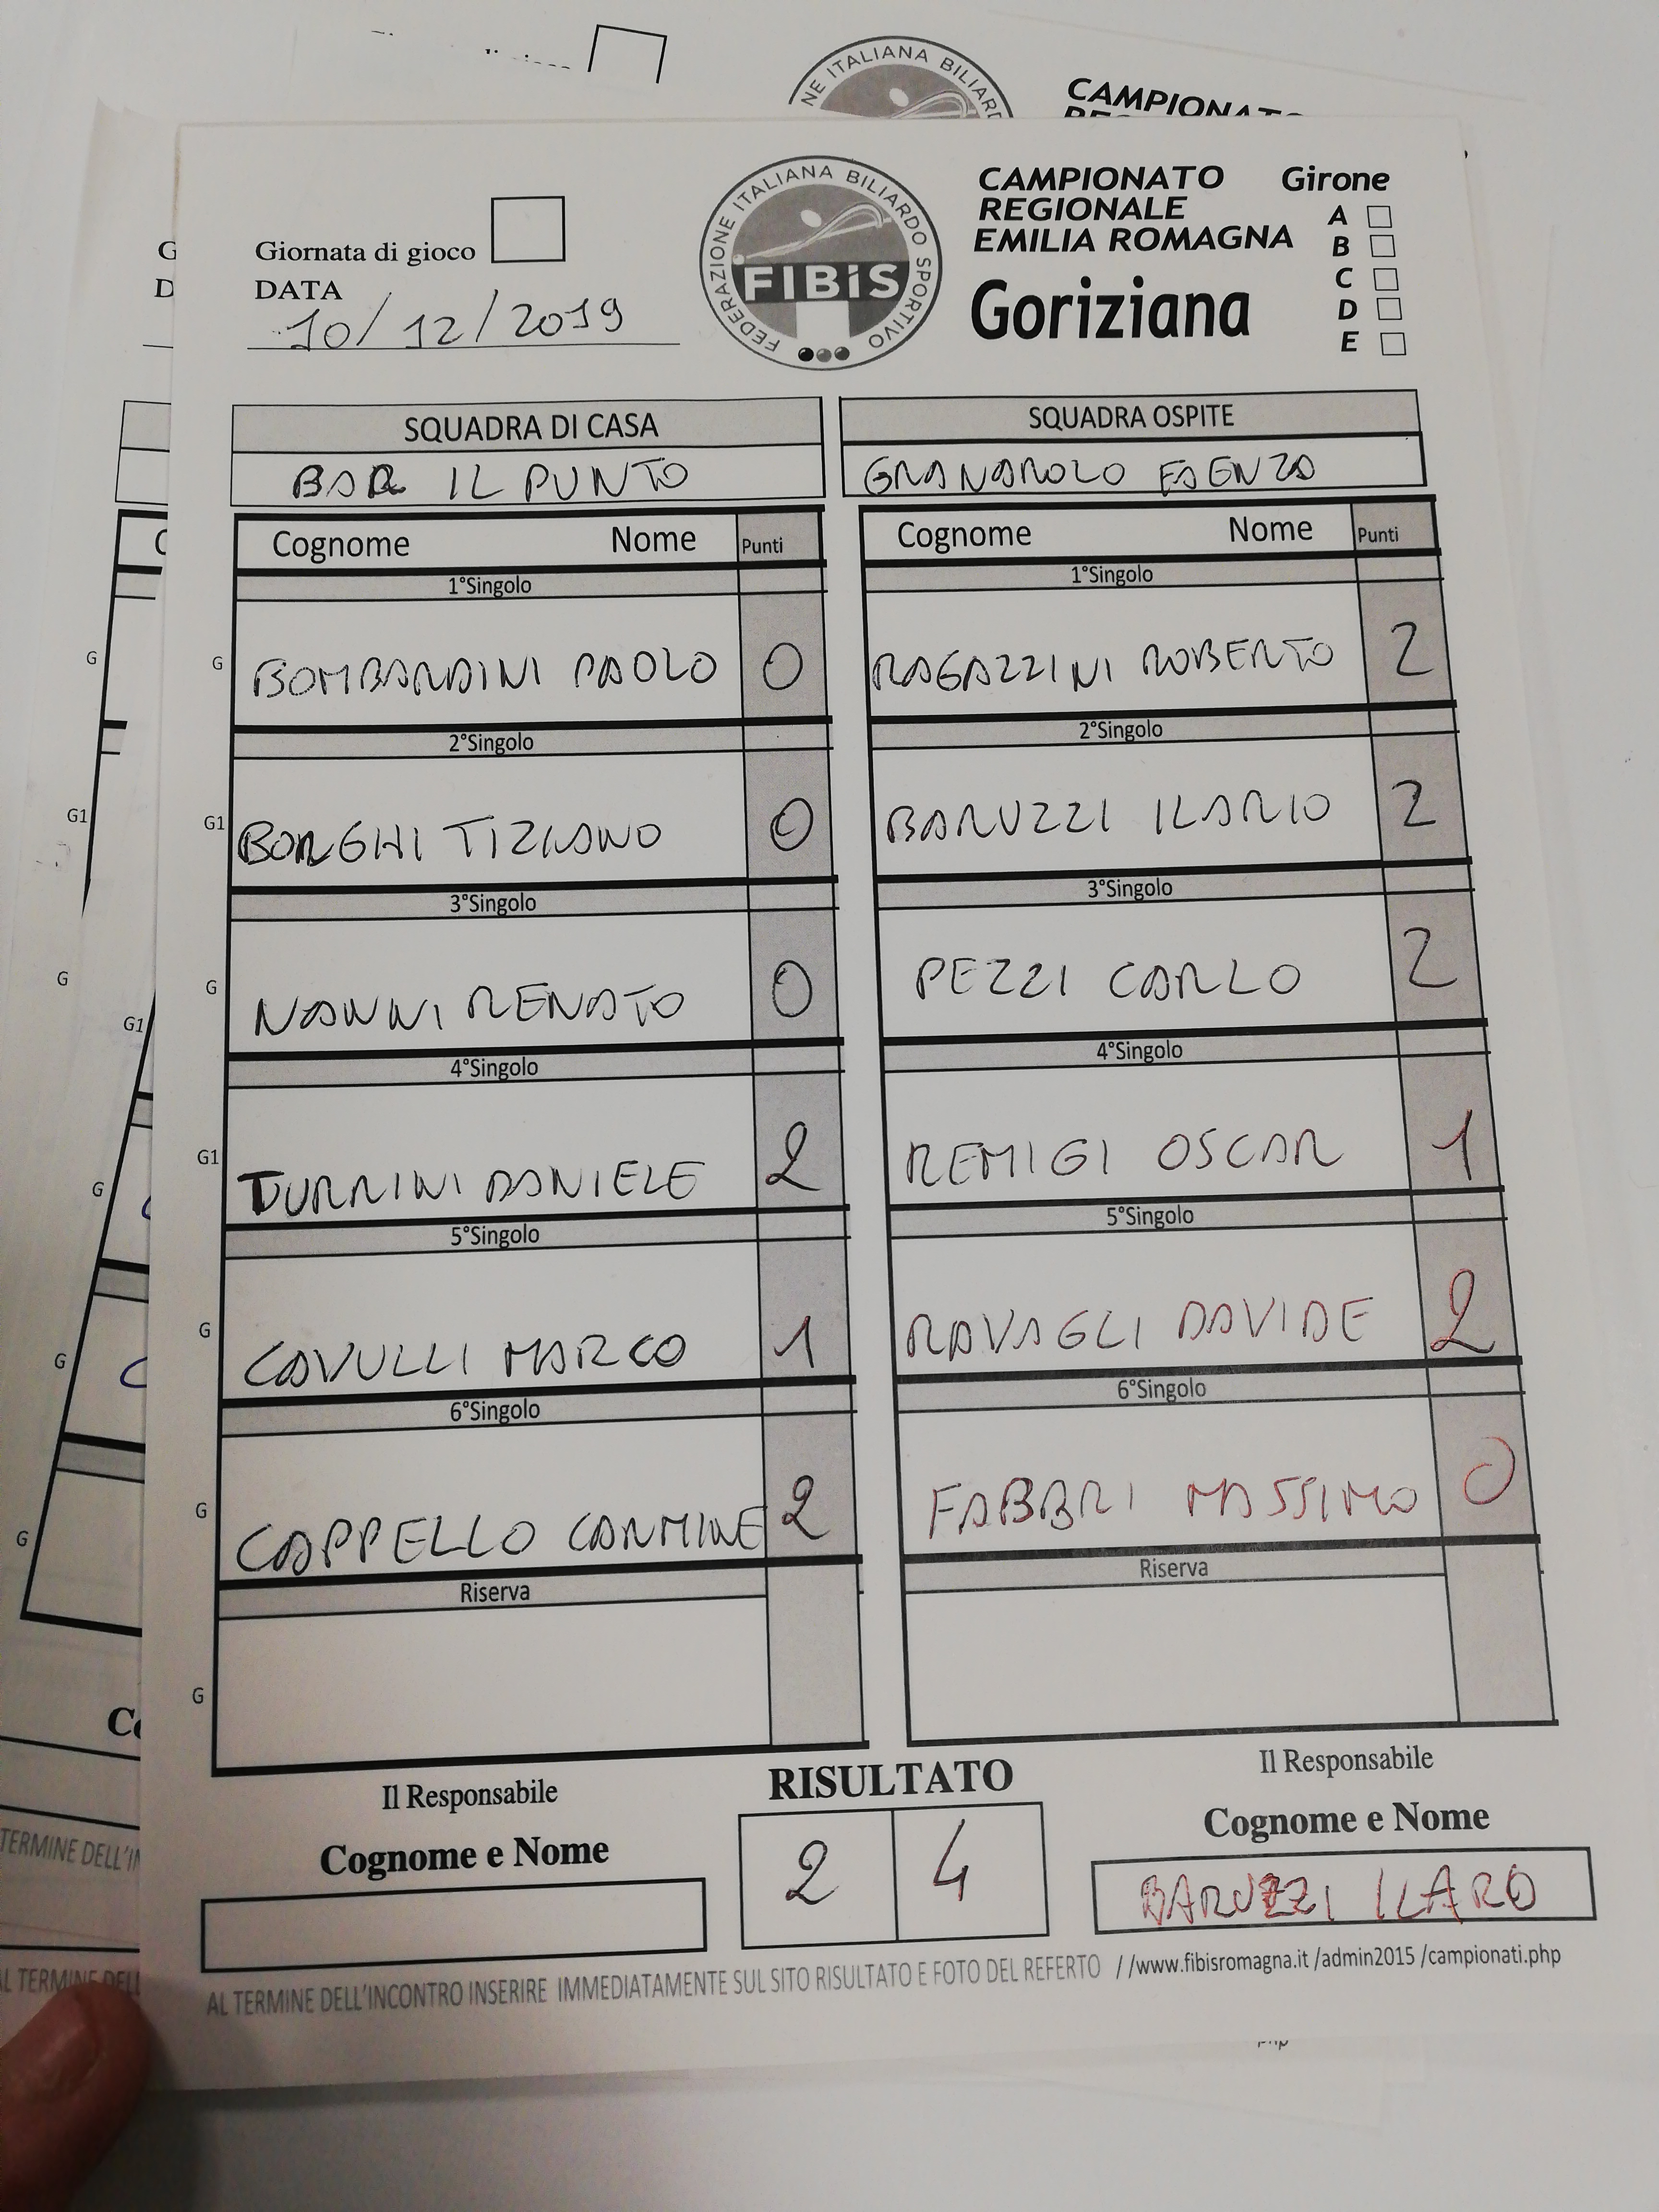 NE ITALIANA BILIARD
CAMPIONATO
FEDERAZIONE ITALIANA BILIARDO SPORTIVO
FIBiS
CAMPIONATO
REGIONALE
EMILIA ROMAGNA
Goriziana
Girone
A
B
C
D
E
Giornata di gioco
DATA
10/12/2019
SQUADRA DI CASA
SQUADRA OSPITE
BAR IL PUNTO
GRANAROLO FAENZA
Cognome Nome Punti
Cognome Nome Punti
1°Singolo
1°Singolo
G BOMBARDINI PAOLO 0
RAGAZZINI ROBERTO 2
2°Singolo
2°Singolo
G1 BORGHI TIZIANO 0
BARUZZI ILARIO 2
3°Singolo
3°Singolo
G NANNI RENATO 0
PEZZI CARLO 2
4°Singolo
4°Singolo
G1 TURRINI DANIELE 2
REMIGI OSCAR 1
5°Singolo
5°Singolo
G CAVULLI MARCO 1
RAVAGLI DAVIDE 2
6°Singolo
6°Singolo
G CAPPELLO CARMINE 2
FABBRI MASSIMO 0
Riserva
Riserva
G
Il Responsabile
RISULTATO
Il Responsabile
Cognome e Nome
2 4
Cognome e Nome
BARUZZI ILARO
AL TERMINE DELL'INCONTRO INSERIRE IMMEDIATAMENTE SUL SITO RISULTATO E FOTO DEL REFERTO //www.fibisromagna.it /admin2015 /campionati.php
G
D
C
G
G1
G
G1
G
G
G
TERMINE DELL'IN
L TERMINE DELL
php